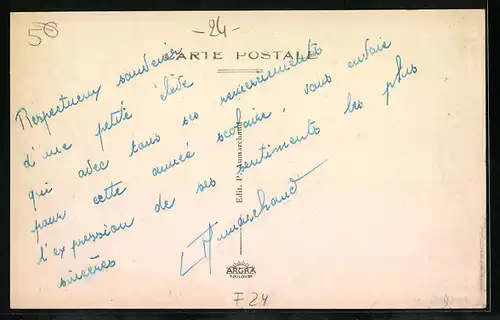 50
- 24 -
CARTE POSTALE
Respectueux souvenir
d'une petite élève
qui avec tous ses remerciements
pour cette année scolaire, vous envoie
l'expression de ses sentiments les plus
sincères
Aumarchand
Edit. P. Aumarchand
ARGRA
TOULOUSE
F 24